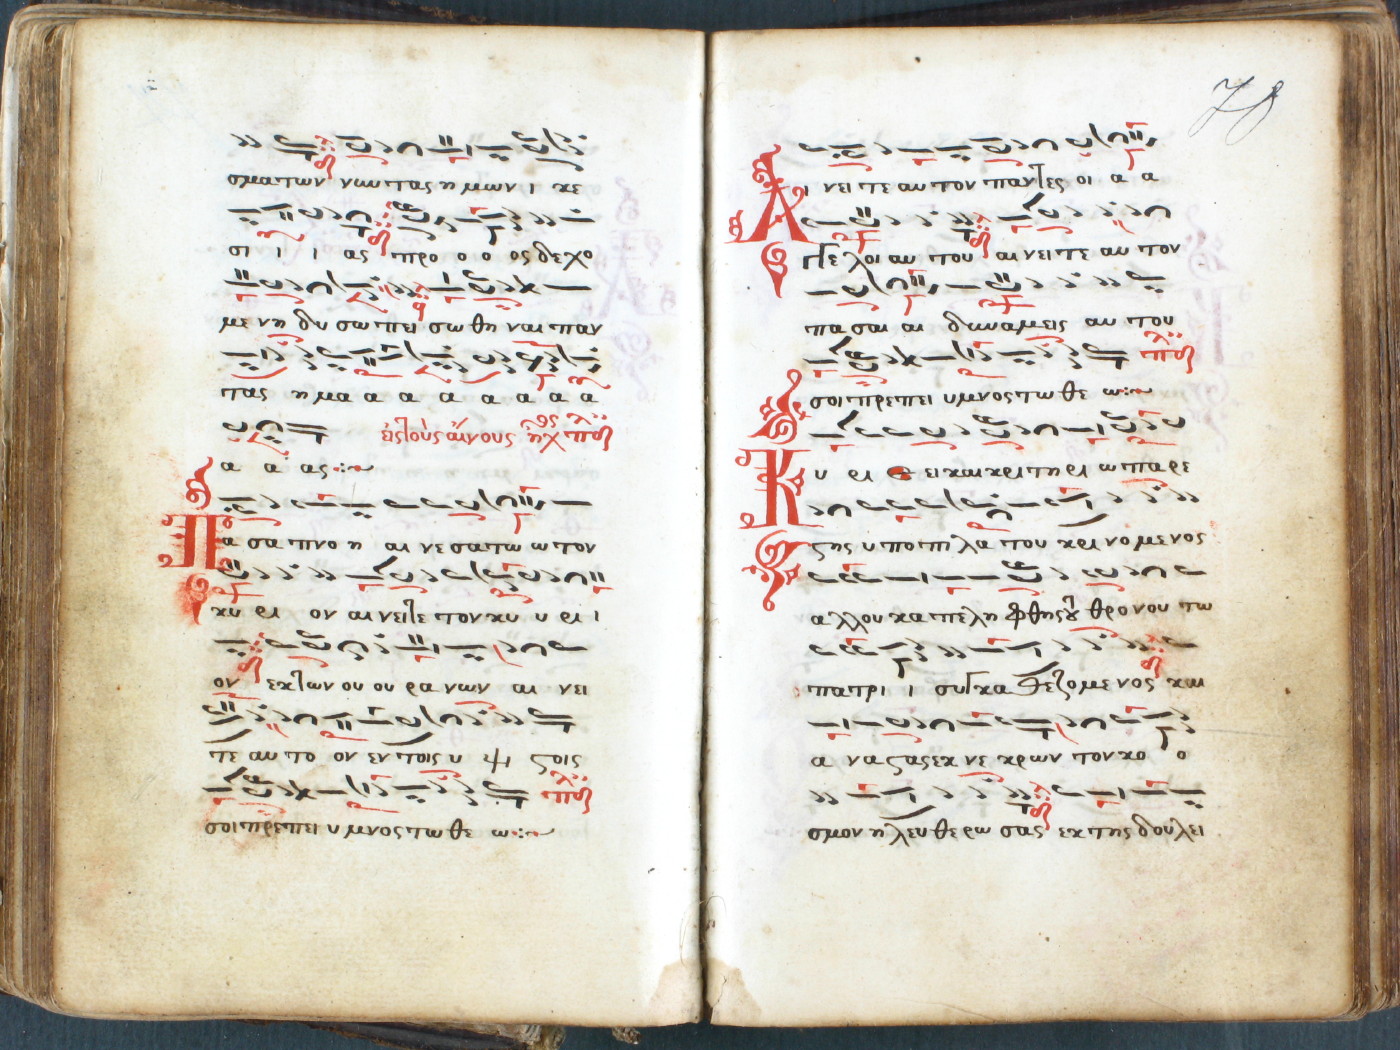 σματων νων τας η μων ι κε
σι ι ι ας προ ο ο ος δε χο
με νη δυ σω πει σω θη ναι παν
τας η μα α α α α α α α
εἰς τοὺς αἴνους ἦχος πλ
α α ας
Πα σα πνο η αι νε σατω ω τον
κυ ρι ον αι νει τε τον κυ υ ρι ι
ον εκ των ου ου ρα νων αι νει
τε αυ το ον εν τοις υ ψι στοις
σοι πρεπει υ μνος τω θε ω
78
Αι νει τε αυ τον παντες οι α α
γγε λοι αυ του αι νει τε αυ τον
πα σαι αι δυναμεις αυ του
σοι πρεπει υ μνος τω θε ω
Κυ ρι ε ει και κριτη ρι ω παρε
στης υ πο πι λα του κρι νο με νος
αλλ ου κα πε λη φθης του θρο νου τω
πα τρι ι συγ κα θεζομε νος και
α να στας εκ νε κρων τον κο ο
σμον η λευ θε ρω σας εκ της δουλει